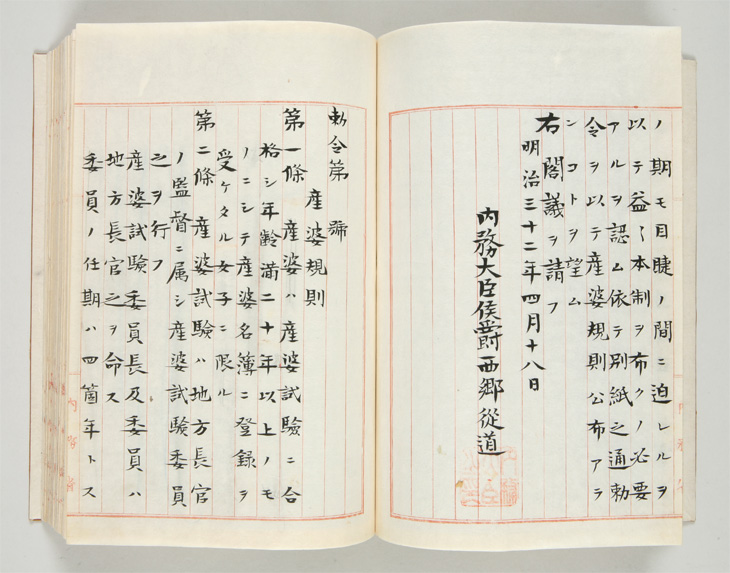 ノ期モ目睫ノ間ニ迫レルヲ
以テ益〻本制ヲ布クノ必要
アルヲ認ム依テ別紙之通勅
令ヲ以テ産婆規則公布アラ
ンコトヲ望ム
右閣議ヲ請フ
明治三十二年四月十八日
内務大臣侯爵西郷從道
勅令第 號
産婆規則
第一條 産婆ハ産婆試験ニ合
格シ年齢満二十年以上ノモ
ノニシテ産婆名簿ニ登録ヲ
受ケタル女子ニ限ル
第二條 産婆試験ハ地方長官
ノ監督ニ属シ産婆試験委員
之ヲ行フ
産婆試験委員長及委員ハ
地方長官之ヲ命ス
委員ノ任期ハ四箇年トス